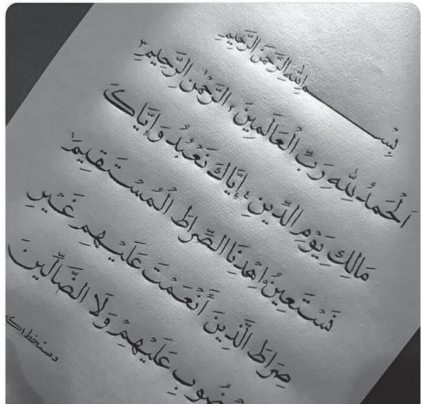 بِسْمِ اللهِ الرَّحْمٰنِ الرَّحِيْمِ
اَلْحَمْدُ لِلهِ رَبِّ الْعَالَمِيْنَ الرَّحْمٰنِ الرَّحِيْمِ
مَالِكِ يَوْمِ الدِّيْنِ إِيَّاكَ نَعْبُدُ وَإِيَّاكَ
نَسْتَعِيْنُ اِهْدِنَا الصِّرَاطَ الْمُسْتَقِيْمَ
صِرَاطَ الَّذِيْنَ أَنْعَمْتَ عَلَيْهِمْ غَيْرِ
عَلَيْهِمْ وَلَا الضَّالِّيْنَ